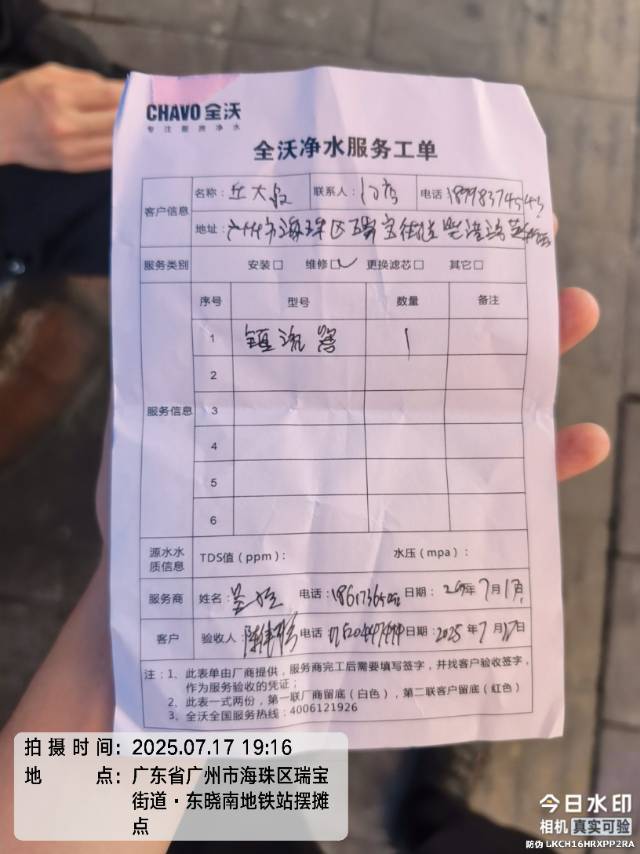 CHAVO 全沃
专注厨房净水
全沃净水服务工单
客户信息
名称：丘大叔 联系人： 电话
地址：广州市海珠区瑞宝街道
服务类别 安装□ 维修□✓ 更换滤芯□ 其它□
服务信息
序号 型号 数量 备注
1 镇流器 1
2
3
4
5
6
源水水质信息 TDS值（ppm）： 水压（mpa）：
服务商 姓名： 电话： 日期： 年7月1日
客户 验收人： 电话 日期：2025年7月17日
注：1、此表单由厂商提供，服务商完工后需要填写签字，并找客户验收签字，
作为服务验收的凭证；
2、此表一式两份，第一联厂商留底（白色），第二联客户留底（红色）
3、全沃全国服务热线：4006121926
拍摄时间：2025.07.17 19:16
地点：广东省广州市海珠区瑞宝
街道·东晓南地铁站摆摊
点
今日水印
相机 真实可验
防伪 LKCH16HRXPP2RA